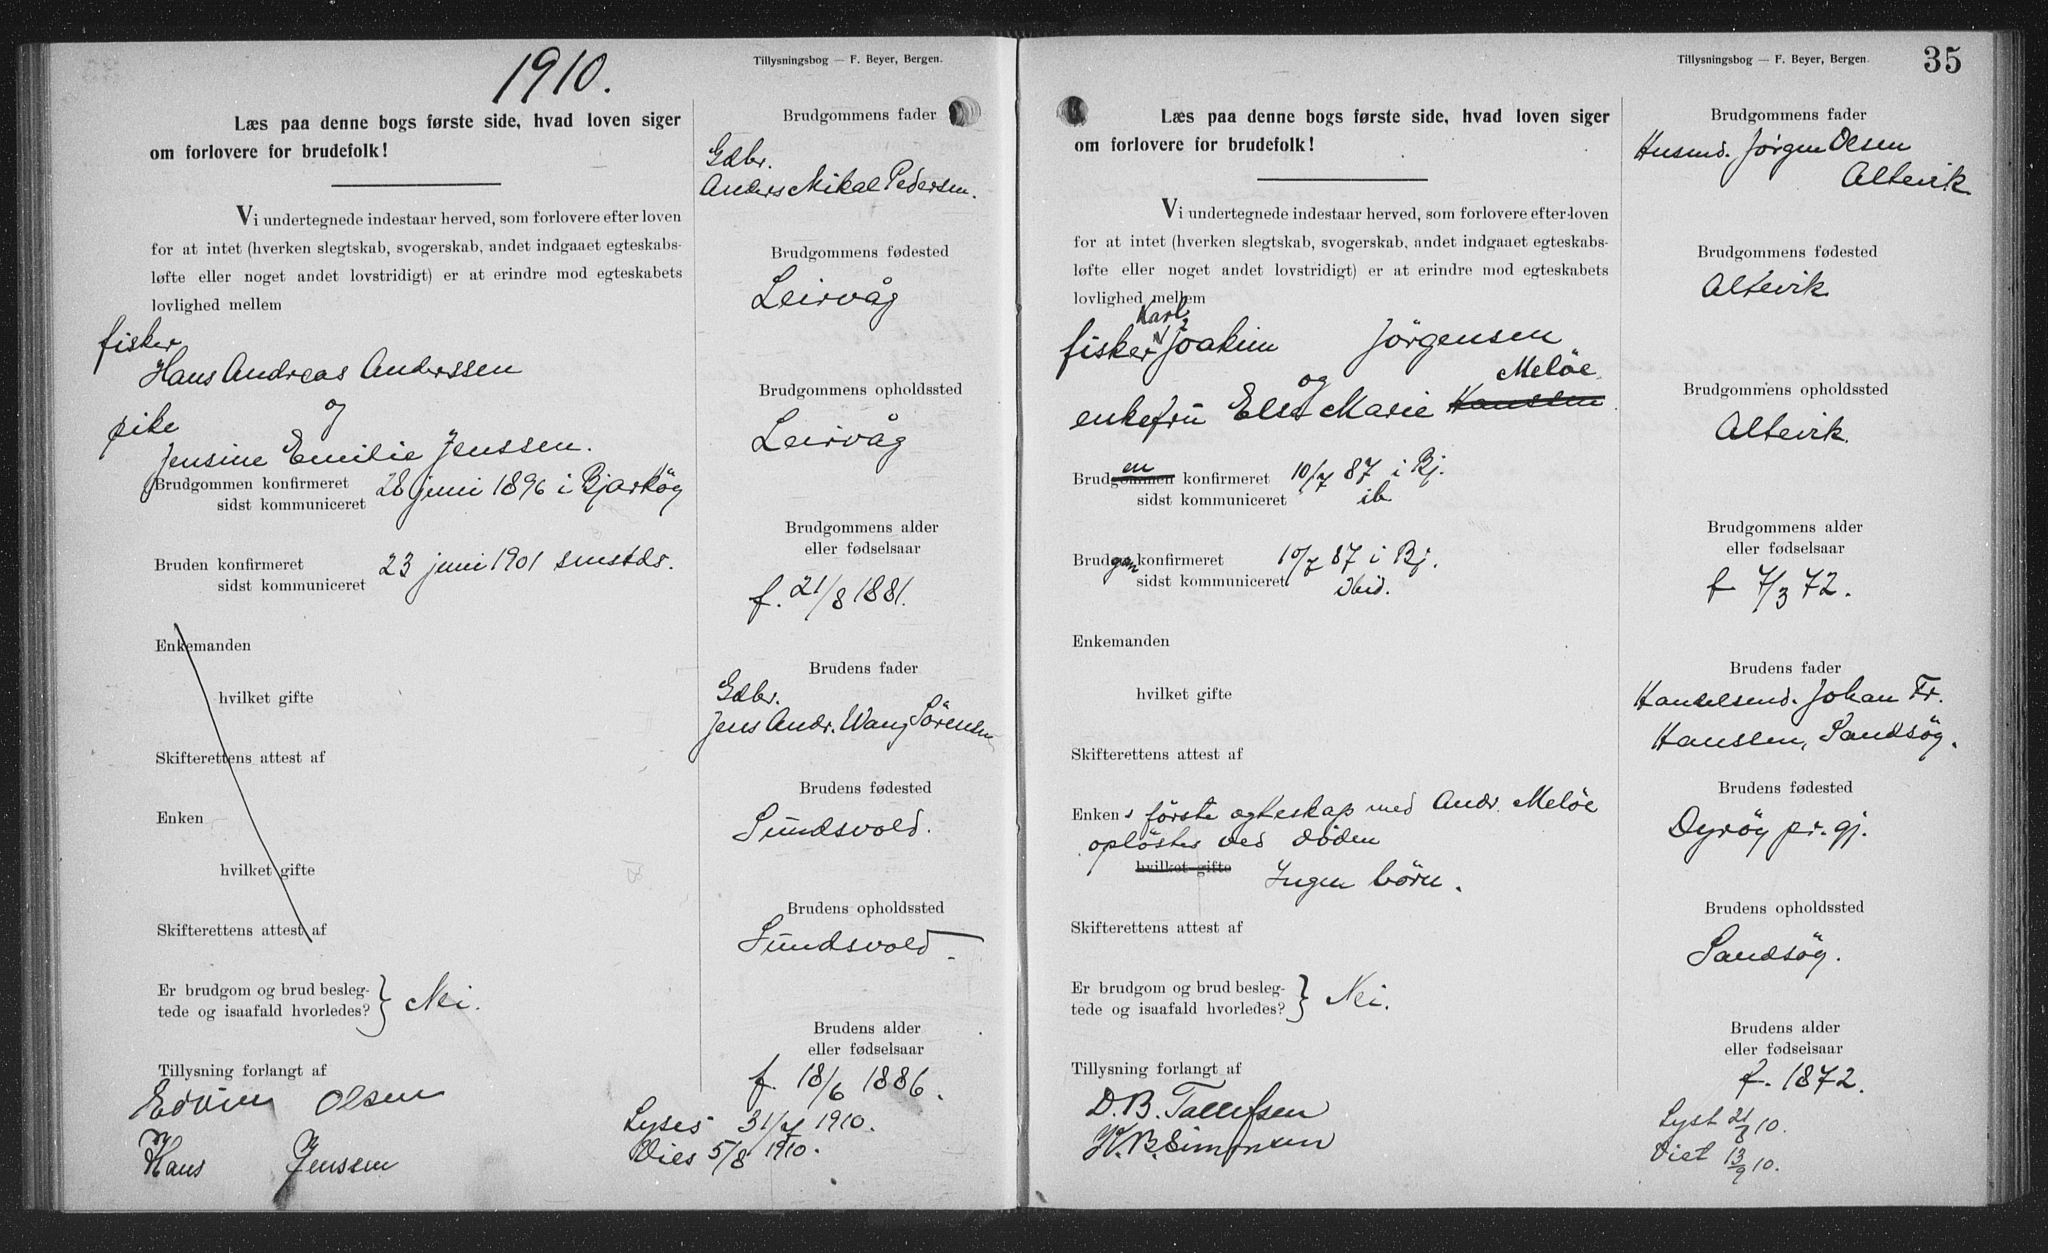 1910.
Tillysningsbog — F. Beyer, Bergen.
Læs paa denne bogs første side, hvad loven siger
om forlovere for brudefolk!
Vi undertegnede indestaar herved, som forlovere efter loven
for at intet (hverken slegtskab, svogerskab, andet indgaaet egteskabs-
løfte eller noget andet lovstridigt) er at erindre mod egteskabets
lovlighed mellem
fisker
Hans Andreas Anderssen
og
pike
Jensine Emilie Jenssen.
Brudgommen konfirmeret 28 juni 1896 i Bjarköy
sidst kommuniceret
Bruden konfirmeret 23 juni 1901 smstds.
sidst kommuniceret
Enkemanden
hvilket gifte
Skifterettens attest af
Enken
hvilket gifte
Skifterettens attest af
Er brudgom og brud besleg-
tede og isaafald hvorledes? } Nei.
Tillysning forlangt af
Edvin Olsen
Hans Jenssen
Brudgommens fader
Gdbr.
Anders Mikal Pedersen.
Brudgommens fødested
Leirvåg
Brudgommens opholdssted
Leirvåg
Brudgommens alder
eller fødselsaar
f. 21/8 1881.
Brudens fader
Gdbr.
Jens Andr. Wang Sörensen
Brudens fødested
Sundsvold.
Brudens opholdssted
Sundsvold.
Brudens alder
eller fødselsaar
f. 18/6 1886.
Lyses 31/7 1910.
Vies 5/8 1910.
Tillysningsbog — F. Beyer, Bergen.
35
Læs paa denne bogs første side, hvad loven siger
om forlovere for brudefolk!
Vi undertegnede indestaar herved, som forlovere efter loven
for at intet (hverken slegtskab, svogerskab, andet indgaaet egteskabs-
løfte eller noget andet lovstridigt) er at erindre mod egteskabets
lovlighed mellem
Karl
fisker Joakim Jörgensen
og Meløe
enkefru Else Marie Hanssen
en
Brudgommen konfirmeret 10/7 87 i Bj.
sidst kommuniceret ib
Brudgom konfirmeret 10/7 87 i Bj.
sidst kommuniceret ibid.
Enkemanden
hvilket gifte
Skifterettens attest af
Enkens første egteskap med Andr. Meløe
opløstes ved døden
hvilket gifte Ingen börn.
Skifterettens attest af
Er brudgom og brud besleg-
tede og isaafald hvorledes? } Nei.
Tillysning forlangt af
D. B. Tollefsen
K. B. Simonsen
Brudgommens fader
Husmd. Jørgen Olsen
Altevik
Brudgommens fødested
Altevik
Brudgommens opholdssted
Altevik.
Brudgommens alder
eller fødselsaar
f 7/3 72.
Brudens fader
Handelsmd. Johan Fr.
Hanssen, Sandsöy.
Brudens fødested
Dyröy pr.gj.
Brudens opholdssted
Sandsöy.
Brudens alder
eller fødselsaar
f. 1872.
Lyst 21/8 10.
Viet 13/9 10.